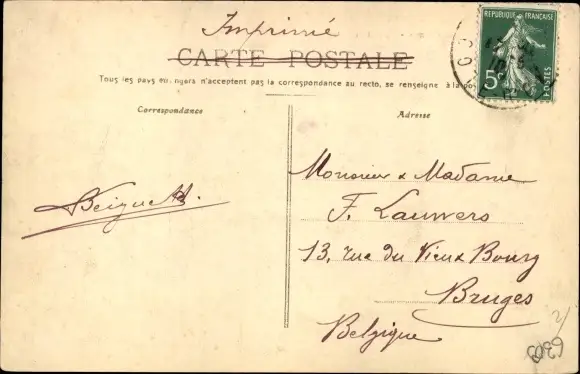 Imprimé
CARTE POSTALE
Tous les pays étrangers n'acceptent pas la correspondance au recto, se renseigne à la pos
Correspondance
Adresse
REPUBLIQUE FRANÇAISE
5c
POSTES
Monsieur & Madame
F. Lauwers
13, rue du Vieux Bourg
Bruges
Belgique